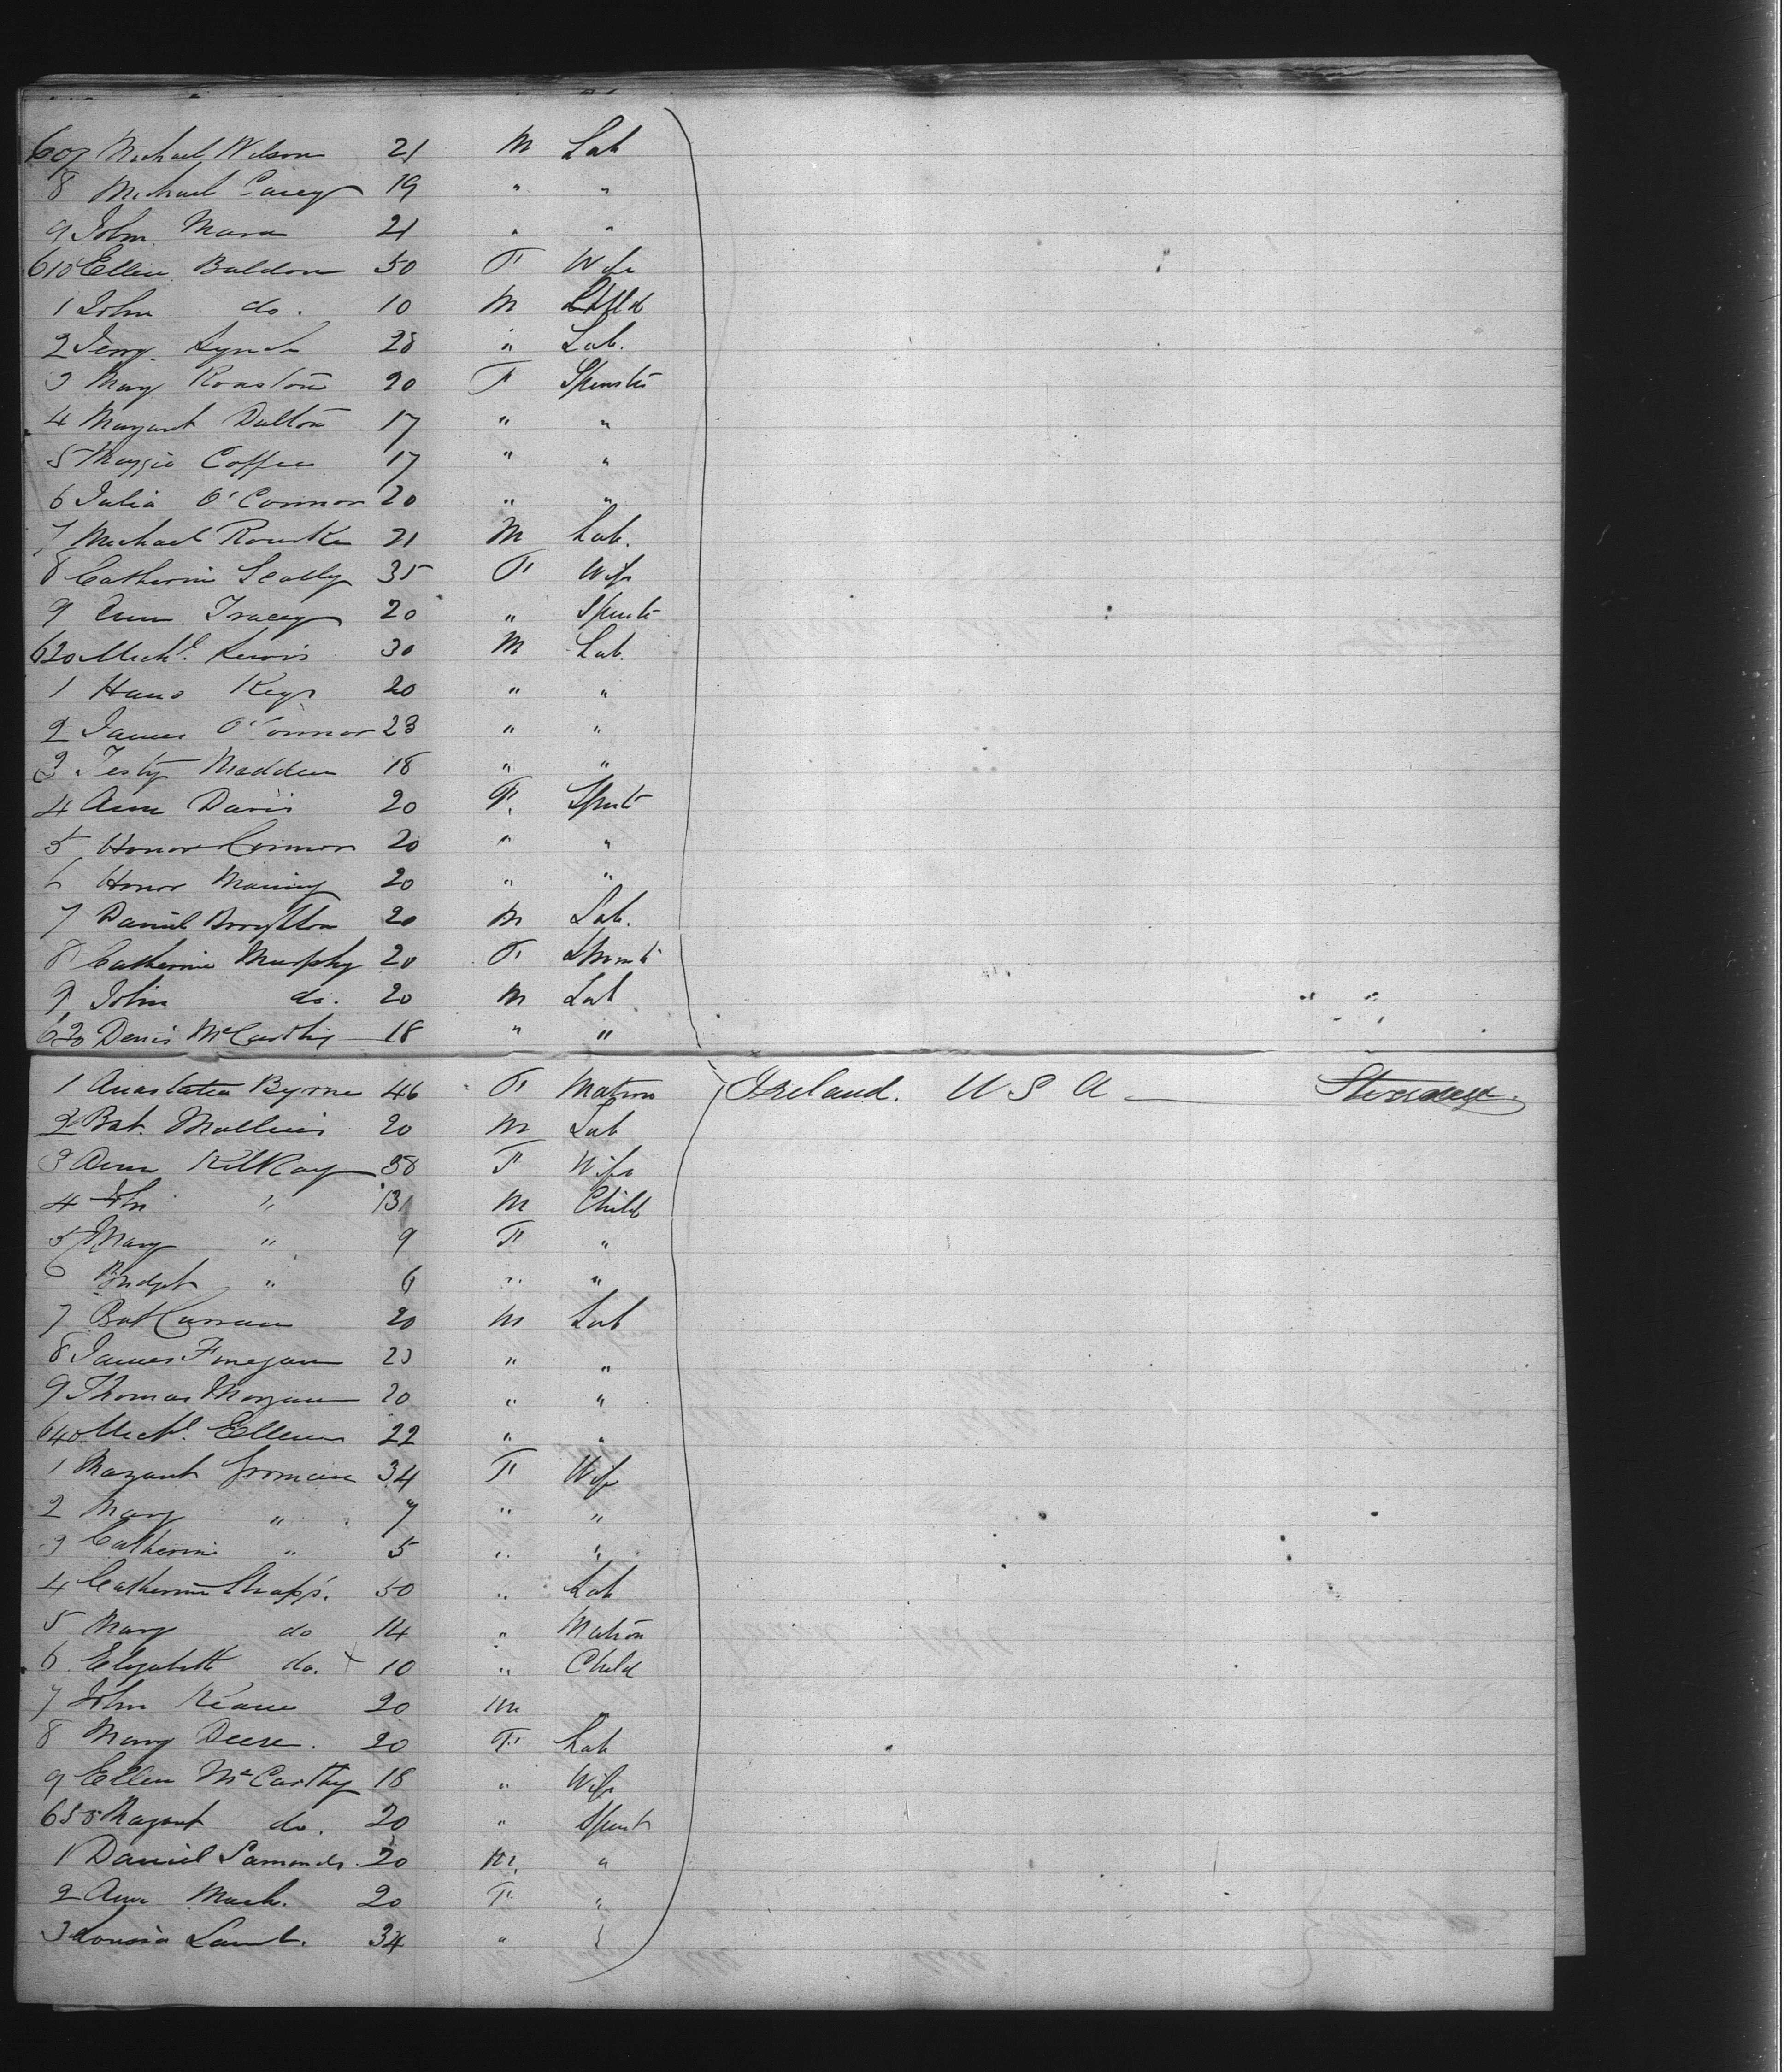 607 Michael Wilson 21 M Lab
8 Michael Casey 19 " "
9 John Mara 21 " "
610 Ellen Baldon 50 F Wife
1 John do. 10 M Child
2 Jerry Lynch 28 " Lab.
3 Mary 20 F Spinstr
4 Margaret Dalton 17 " "
5 Maggie Coffee 17 " "
6 Julia O'Connor 20 " "
7 Michael Rourke 21 M Lab.
8 Catherine Scally 35 F Wife
9 Ann Tracey 20 " Spinstr
620 Michl. Lewis 30 M Lab.
1 Hans Keys 20 " "
2 James O'Connor 23 " "
3 Festy Madden 18 " "
4 Ann Davis 20 F. Spinstr
5 Honor Connor 20 " "
6 Honor 20 " "
7 Daniel Broughton 20 M Lab.
8 Catherine Murphy 20 F Spinstr
9 John do. 20 M Lab
630 Denis McCarthy 18 " "
1 Anastatia Byrne 46 F Matron Ireland. U S A — Steerage
2 Pat. Mullins 20 M Lab
3 Ann KilKay 38 F Wife
4 John " 13 M Child
5 Mary " 9 F "
6 Bridget " 6 " "
7 Pat Curran 20 M Lab
8 James Finegan 23 " "
9 Thomas Morgan 20 " "
640 Michl. Ellen 22 " "
1 Margaret 34 F Wife
2 Mary " 7 " "
3 Catherine " 5 " "
4 Catherine 50 " Lab
5 Mary do 14 " Matron
6 Elizabeth do. 10 " Child
7 John Keane 20 M "
8 Mary 20 F Lab
9 Ellen McCarthy 18 " Wife
650 Margaret do. 20 " Spinst
1 Daniel 20 M. "
2 Ann Mack. 20 F "
3 Louisa Lamb. 34 " "